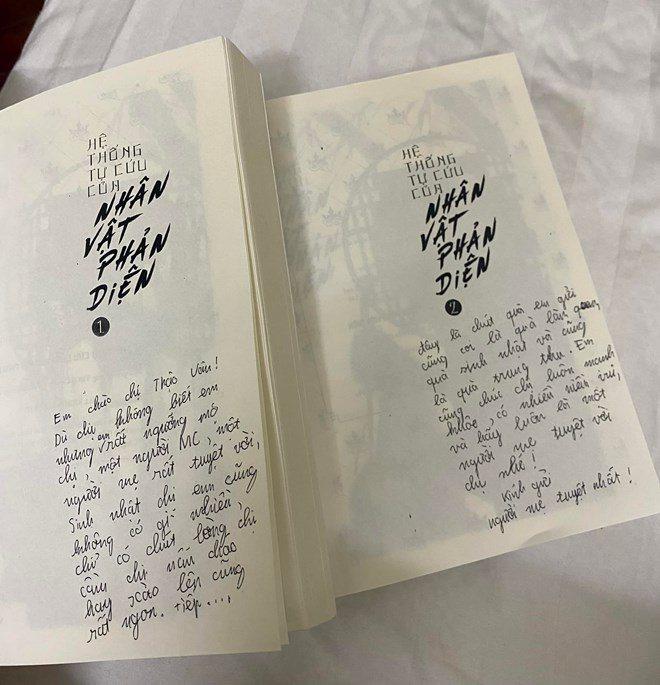 HỆ
THỐNG
TỰ CỨU
CỦA
NHÂN
VẬT
PHẢN
DIỆN
1
Em chào chị Thảo Vân!
Dù chị không biết em
nhưng em rất ngưỡng mộ
chị, một người MC, một
người mẹ rất tuyệt vời,
Sinh nhật chị em cũng
không có gì nhiều,
chỉ có chút lòng chị
cầm chị nấu cháo
hay xào lên cũng
rất ngon. tiếp...,
HỆ
THỐNG
TỰ CỨU
CỦA
NHÂN
VẬT
PHẢN
DIỆN
2
đây là chút quà em gửi
cũng coi là quà làm quen,
quà sinh nhật và cũng
là quà trung thu. Em
cũng chúc chị luôn mạnh
khỏe, có nhiều niềm vui,
và hãy luôn là một
người mẹ tuyệt vời
chị nhé!
Kính gửi
người mẹ tuyệt nhất!